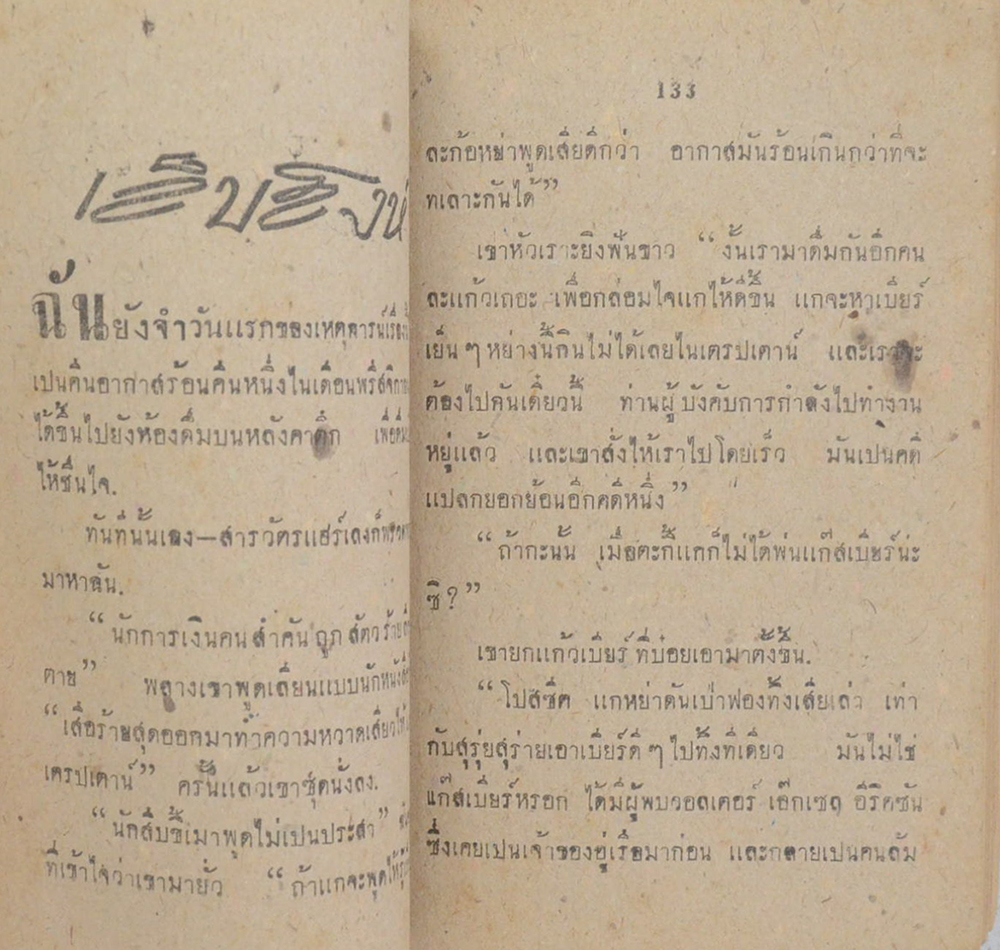 ฉันยังจำวันแรกของเหตุการน์เรื่องนี้
เปนคืนอากาสร้อนคืนหนึ่งในเดือนพรึสจิกา
ได้ขึ้นไปยังห้องดื่มบนหลังคาตึก เพื่อดื่ม
ไห้ชื่นไจ.
ทันทีนั้นเอง—สารวัตรแฮร์เลงก็
มาหาฉัน.
“นักการเงินคนสำคันถูกสัตว์ร้าย
ตาย” พลางเขาพูดเลียนแบบนักหนังสือ
“เสือร้ายสุดออกมาทำความหวาดเสียวไห้
เครปเตาน์” ครั้นแล้วเขาซุดนั่งลง.
“นักสืบขี้เมาพูดไม่เปนประสา”
ที่เข้าไจว่าเขามายั่ว “ถ้าแกจะพูดไห้รู้
133
ละก้อหย่าพูดเสียดีกว่า อากาสมันร้อนเกินกว่าที่จะ
ทเลาะกันได้”
เขาหัวเราะยิงฟันขาว “งั้นเรามาดื่มกันอีกคน
ละแก้วเถอะ เพื่อกล่อมไจแกไห้ดีขึ้น แกจะหาเบียร์
เย็นๆหย่างนี้กินไม่ได้เลยในเครปเตาน์ และเราจะ
ต้องไปคันเดี๋ยวนี้ ท่านผู้บังคับการกำลังไปทำงาน
หยู่แล้ว และเขาสั่งไห้เราไปโดยเร็ว มันเปนคดี
แปลกยอกย้อนอีกคดีหนึ่ง”
“ถ้ากะนั้น เมื่อตะกี้แกก็ไม่ได้พ่นแก๊สเบียร์น่ะ
ซิ?”
เขายกแก้วเบียร์ที่บ๋อยเอามาตั้งขึ้น.
“โปสซี่ด แกหย่าดันเป่าฟองทิ้งเสียเล่า เท่า
กับสุรุ่ยสุร่ายเอาเบียร์ดีๆไปทิ้งทีเดียว มันไม่ไช่
แก๊สเบียร์หรอก ได้มีผู้พบวอลเตอร์ เอ๊กเซล อีริคซัน
ซึ่งเคยเปนเจ้าของอู่เรือมาก่อน และกลายเปนคนล้ม